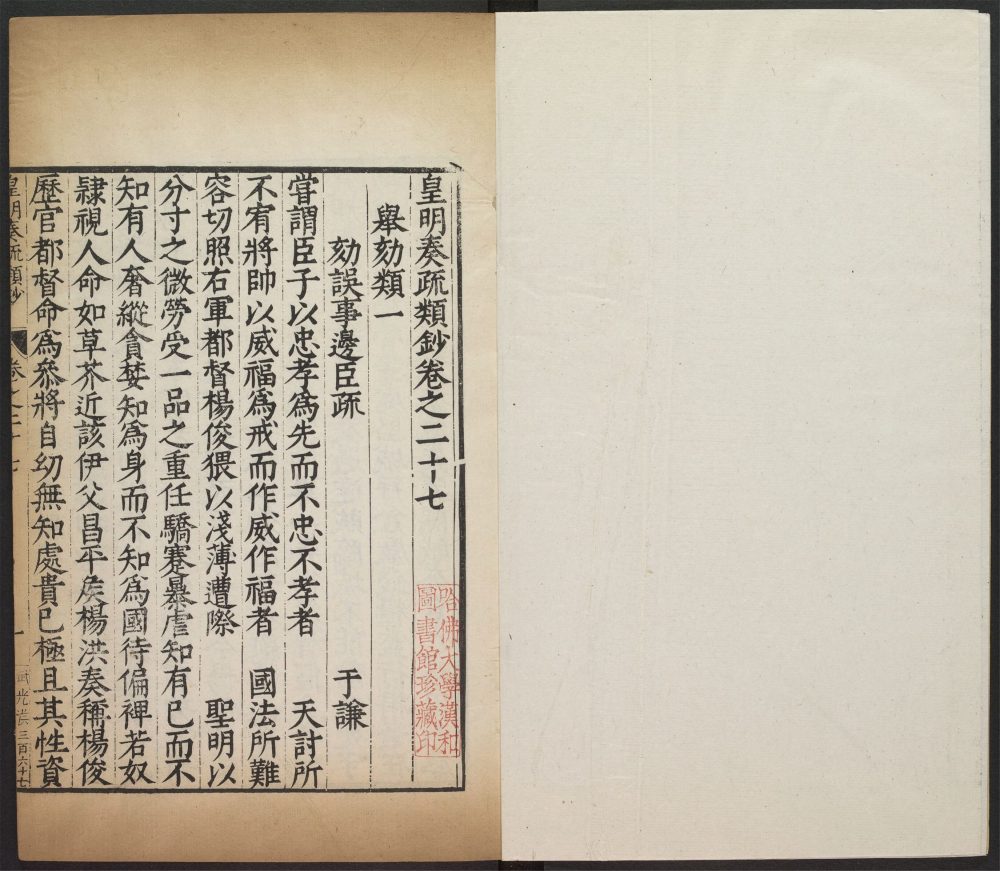 皇明奏疏類鈔卷之二十七
舉劾類一
劾誤事邊臣疏 于謙
嘗謂臣子以忠孝爲先而不忠不孝者 天討所
不宥將帥以威福爲戒而作威作福者 國法所難
容切照右軍都督楊俊猥以淺薄遭際 聖明以
分寸之微勞受一品之重任驕蹇暴虐知有已而不
知有人奢縱貪婪知爲身而不知爲國待偏裨若奴
隸視人命如草芥近該伊父昌平矦楊洪奏稱楊俊
歷官都督命爲叅將自幼無知處貴已極且其性資
皇明奏疏類鈔 卷之二十七 一 三百六十七
哈佛大學漢和
圖書館珍藏印